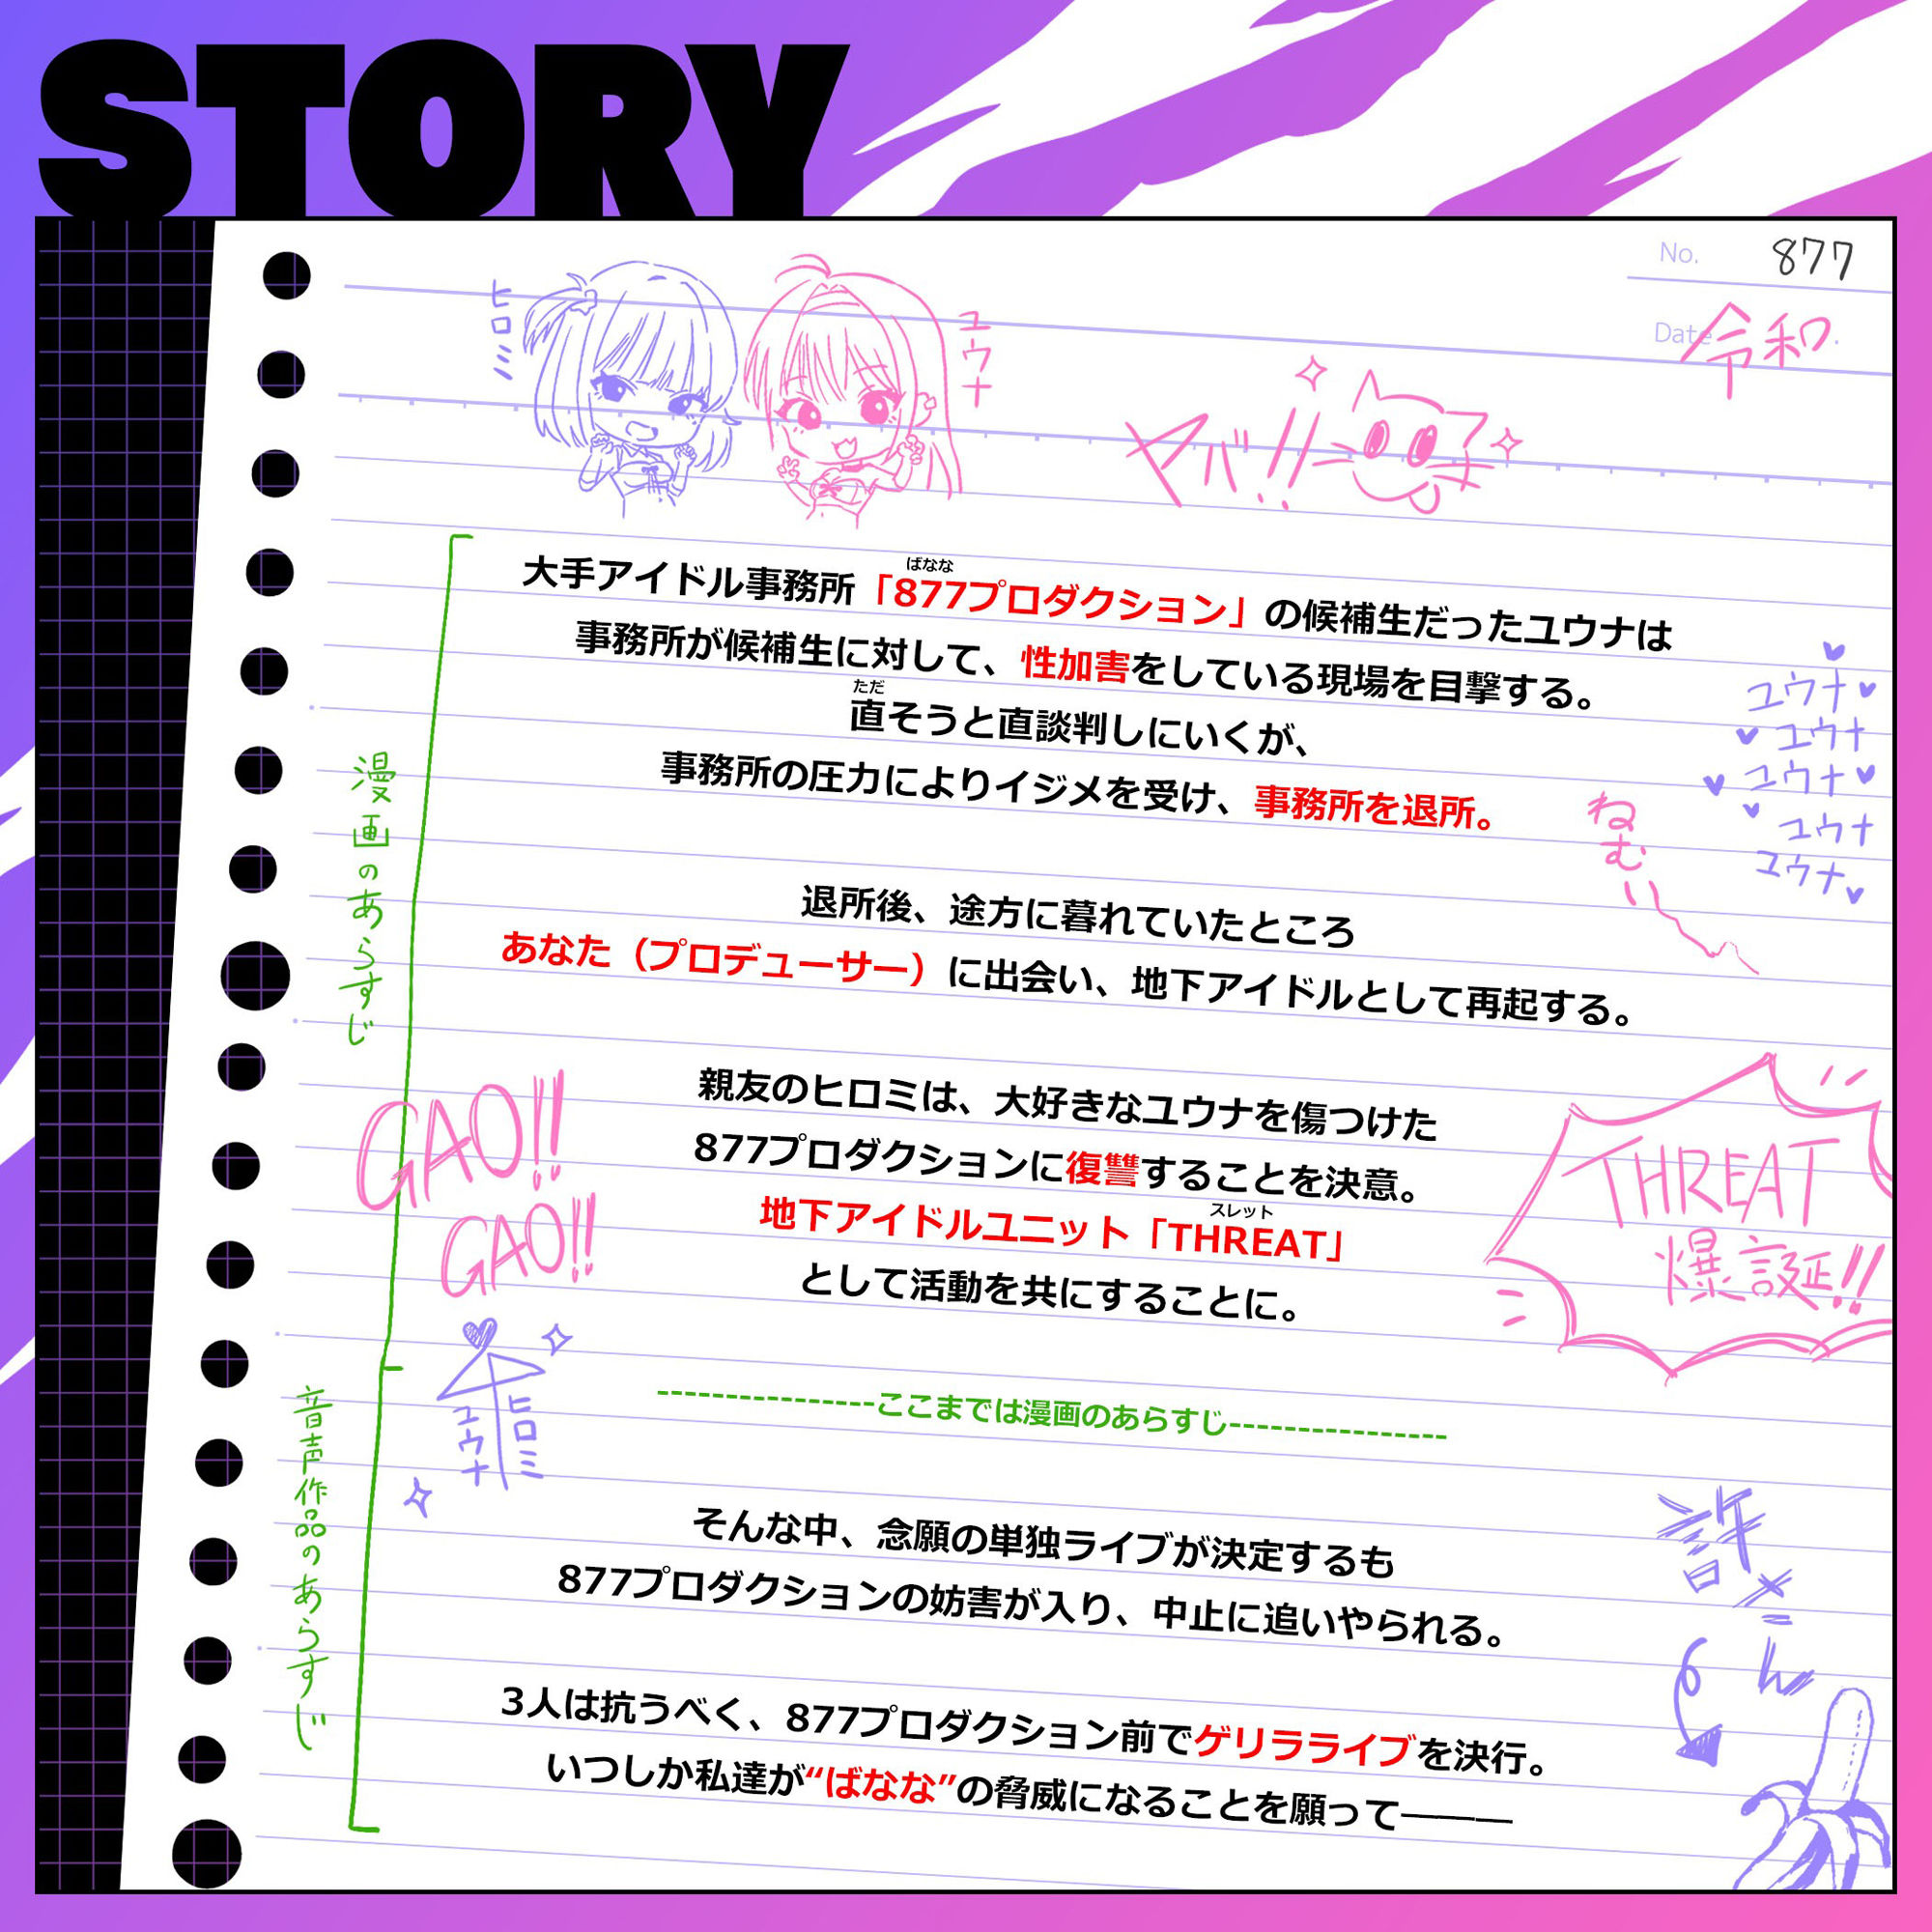 STORY
No. 877
Date 令和.
ヒロミ
ユウナ
ヤバ!!
ばなな
大手アイドル事務所「877プロダクション」の候補生だったユウナは
事務所が候補生に対して、性加害をしている現場を目撃する。
ただ
直そうと直談判しにいくが、
事務所の圧力によりイジメを受け、事務所を退所。
ユウナ
ユウナ
ユウナ
ユウナ
ユウナ
ねむい
漫画のあらすじ
退所後、途方に暮れていたところ
あなた（プロデューサー）に出会い、地下アイドルとして再起する。
親友のヒロミは、大好きなユウナを傷つけた
877プロダクションに復讐することを決意。
スレット
地下アイドルユニット「THREAT」
として活動を共にすることに。
GAO!!
GAO!!
THREAT
爆誕!!
ヒロミ
ユウナ
----------------ここまでは漫画のあらすじ----------------
音声作品のあらすじ
そんな中、念願の単独ライブが決定するも
877プロダクションの妨害が入り、中止に追いやられる。
3人は抗うべく、877プロダクション前でゲリラライブを決行。
いつしか私達が“ばなな”の脅威になることを願って―――
許せん